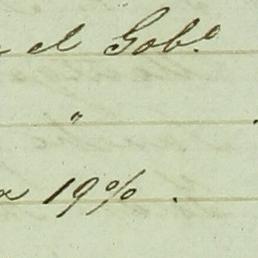 el Gobº
"
19%.